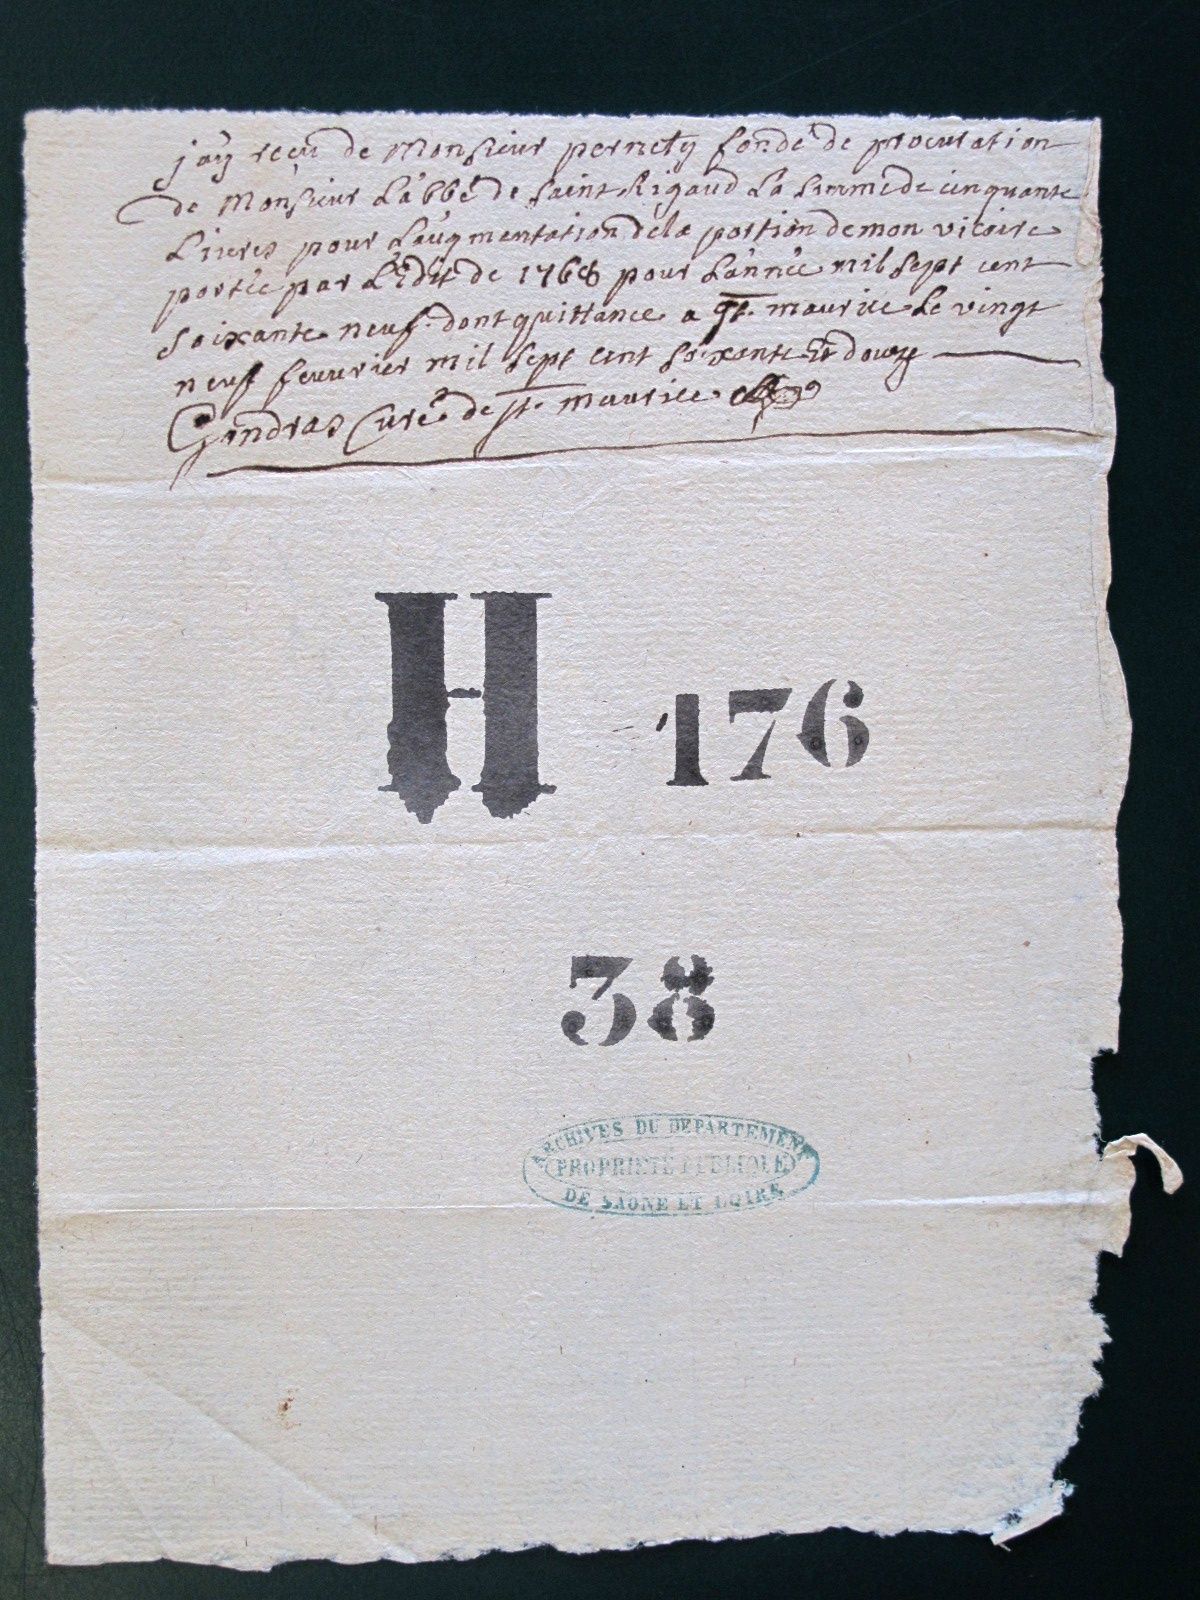 j'ay reçu de Monsieur pernety fondé de procuration
de Monsieur L'abbé de saint Rigaud La summe de cinquante
Livres pour L'augmentation de la portion de mon vicaire
portée par L'Edit de 1768 pour L'année mil sept cent
soixante neuf. dont quittance a st. maurice Le vingt
neuf feuvrier mil sept cent soixante et douze
Gondras Curé de st. maurice
H 176
38
ARCHIVES DU DEPARTEMENT
PROPRIETE PUBLIQUE
DE SAONE ET LOIRE